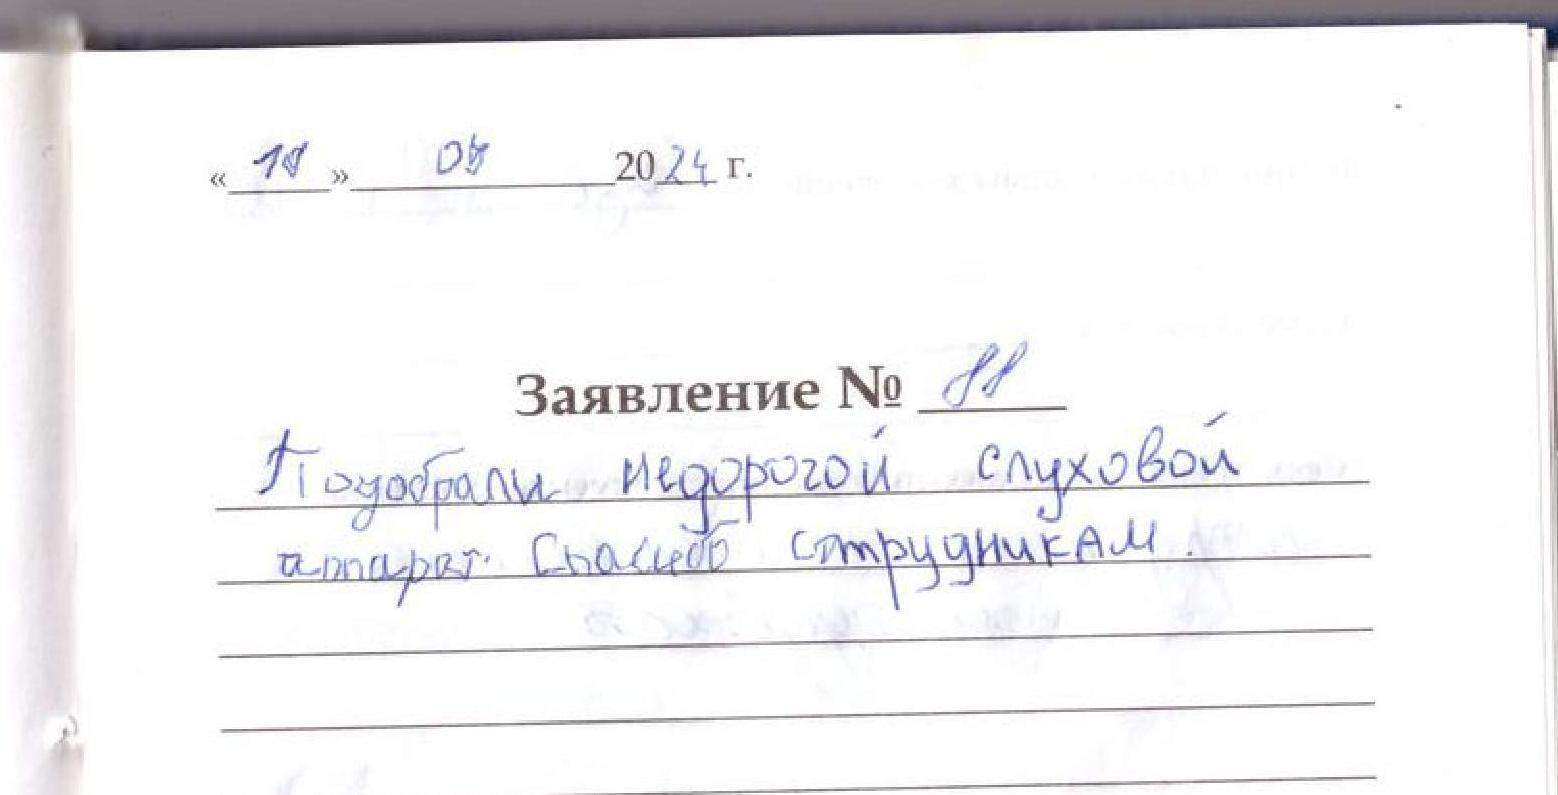 «18» 04 2024 г.
Заявление № 88
Подобрали недорогой слуховой
аппарат. Спасибо сотрудникам.